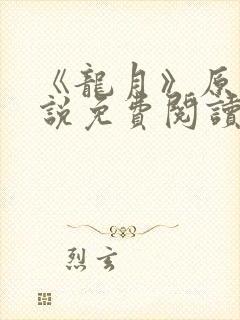 《龍月》原
說免費閱讀
烈玄